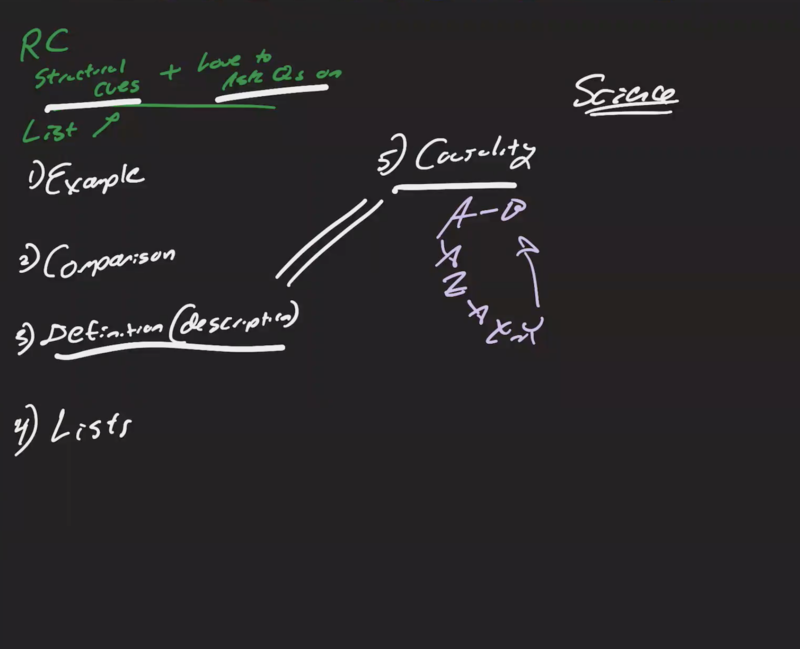 RC
Structural
Cues + Love to
Ask Qs on
List
1) Example
2) Comparison
3) Definition (description)
4) Lists
5) Causality
A - B
Z
X → Y
Science